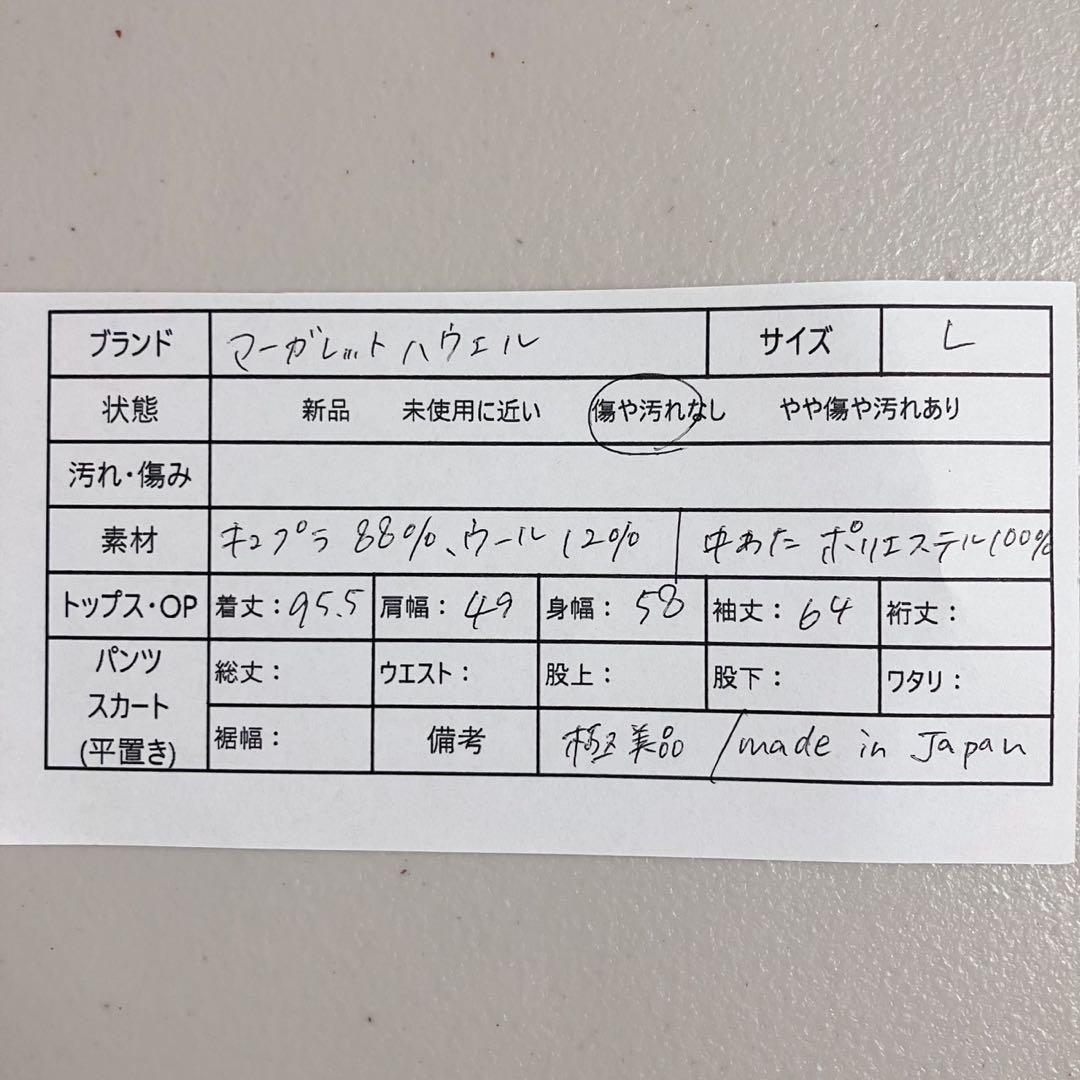 ブランド マーガレットハウエル サイズ L
状態 新品 未使用に近い 傷や汚れなし やや傷や汚れあり
汚れ・傷み
素材 キュプラ 88%、ウール 12% / 中わた ポリエステル100%
トップス・OP 着丈：95.5 肩幅：49 身幅：58 袖丈：64 裄丈：
パンツ スカート (平置き) 総丈： ウエスト： 股上： 股下： ワタリ：
裾幅： 備考 極美品 / made in Japan